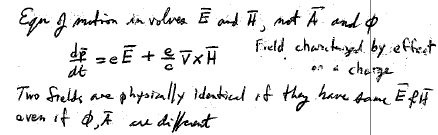 Eqn of motion involves E̅ and H̅, not A̅ and ϕ
dp̅/dt = e E̅ + e/c v̅ x H̅ Field characterized by effect
on a charge
Two fields are physically identical if they have same E̅ & H̅
even if ϕ, A̅ are different